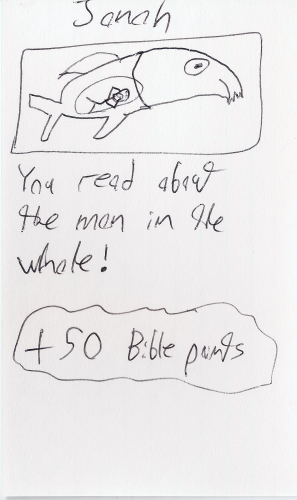 Jonah
You read about
the man in the
whale!
+50 Bible points